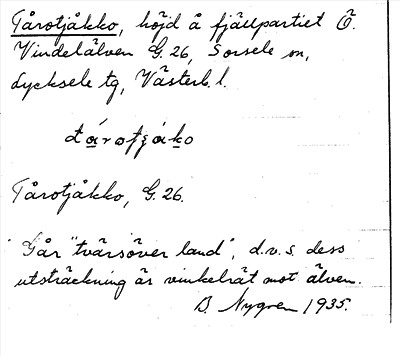 Tårotjåkko, höjd å fjällpartiet Ö.
Vindelälven G. 26, Sorsele sn,
Lycksele tg, Västerb. l.
Tårotjåkko, G. 26.
Går "tvärsöver land", d.v.s. dess
utsträckning är vinkelrät mot älven.
B. Nygren 1935.